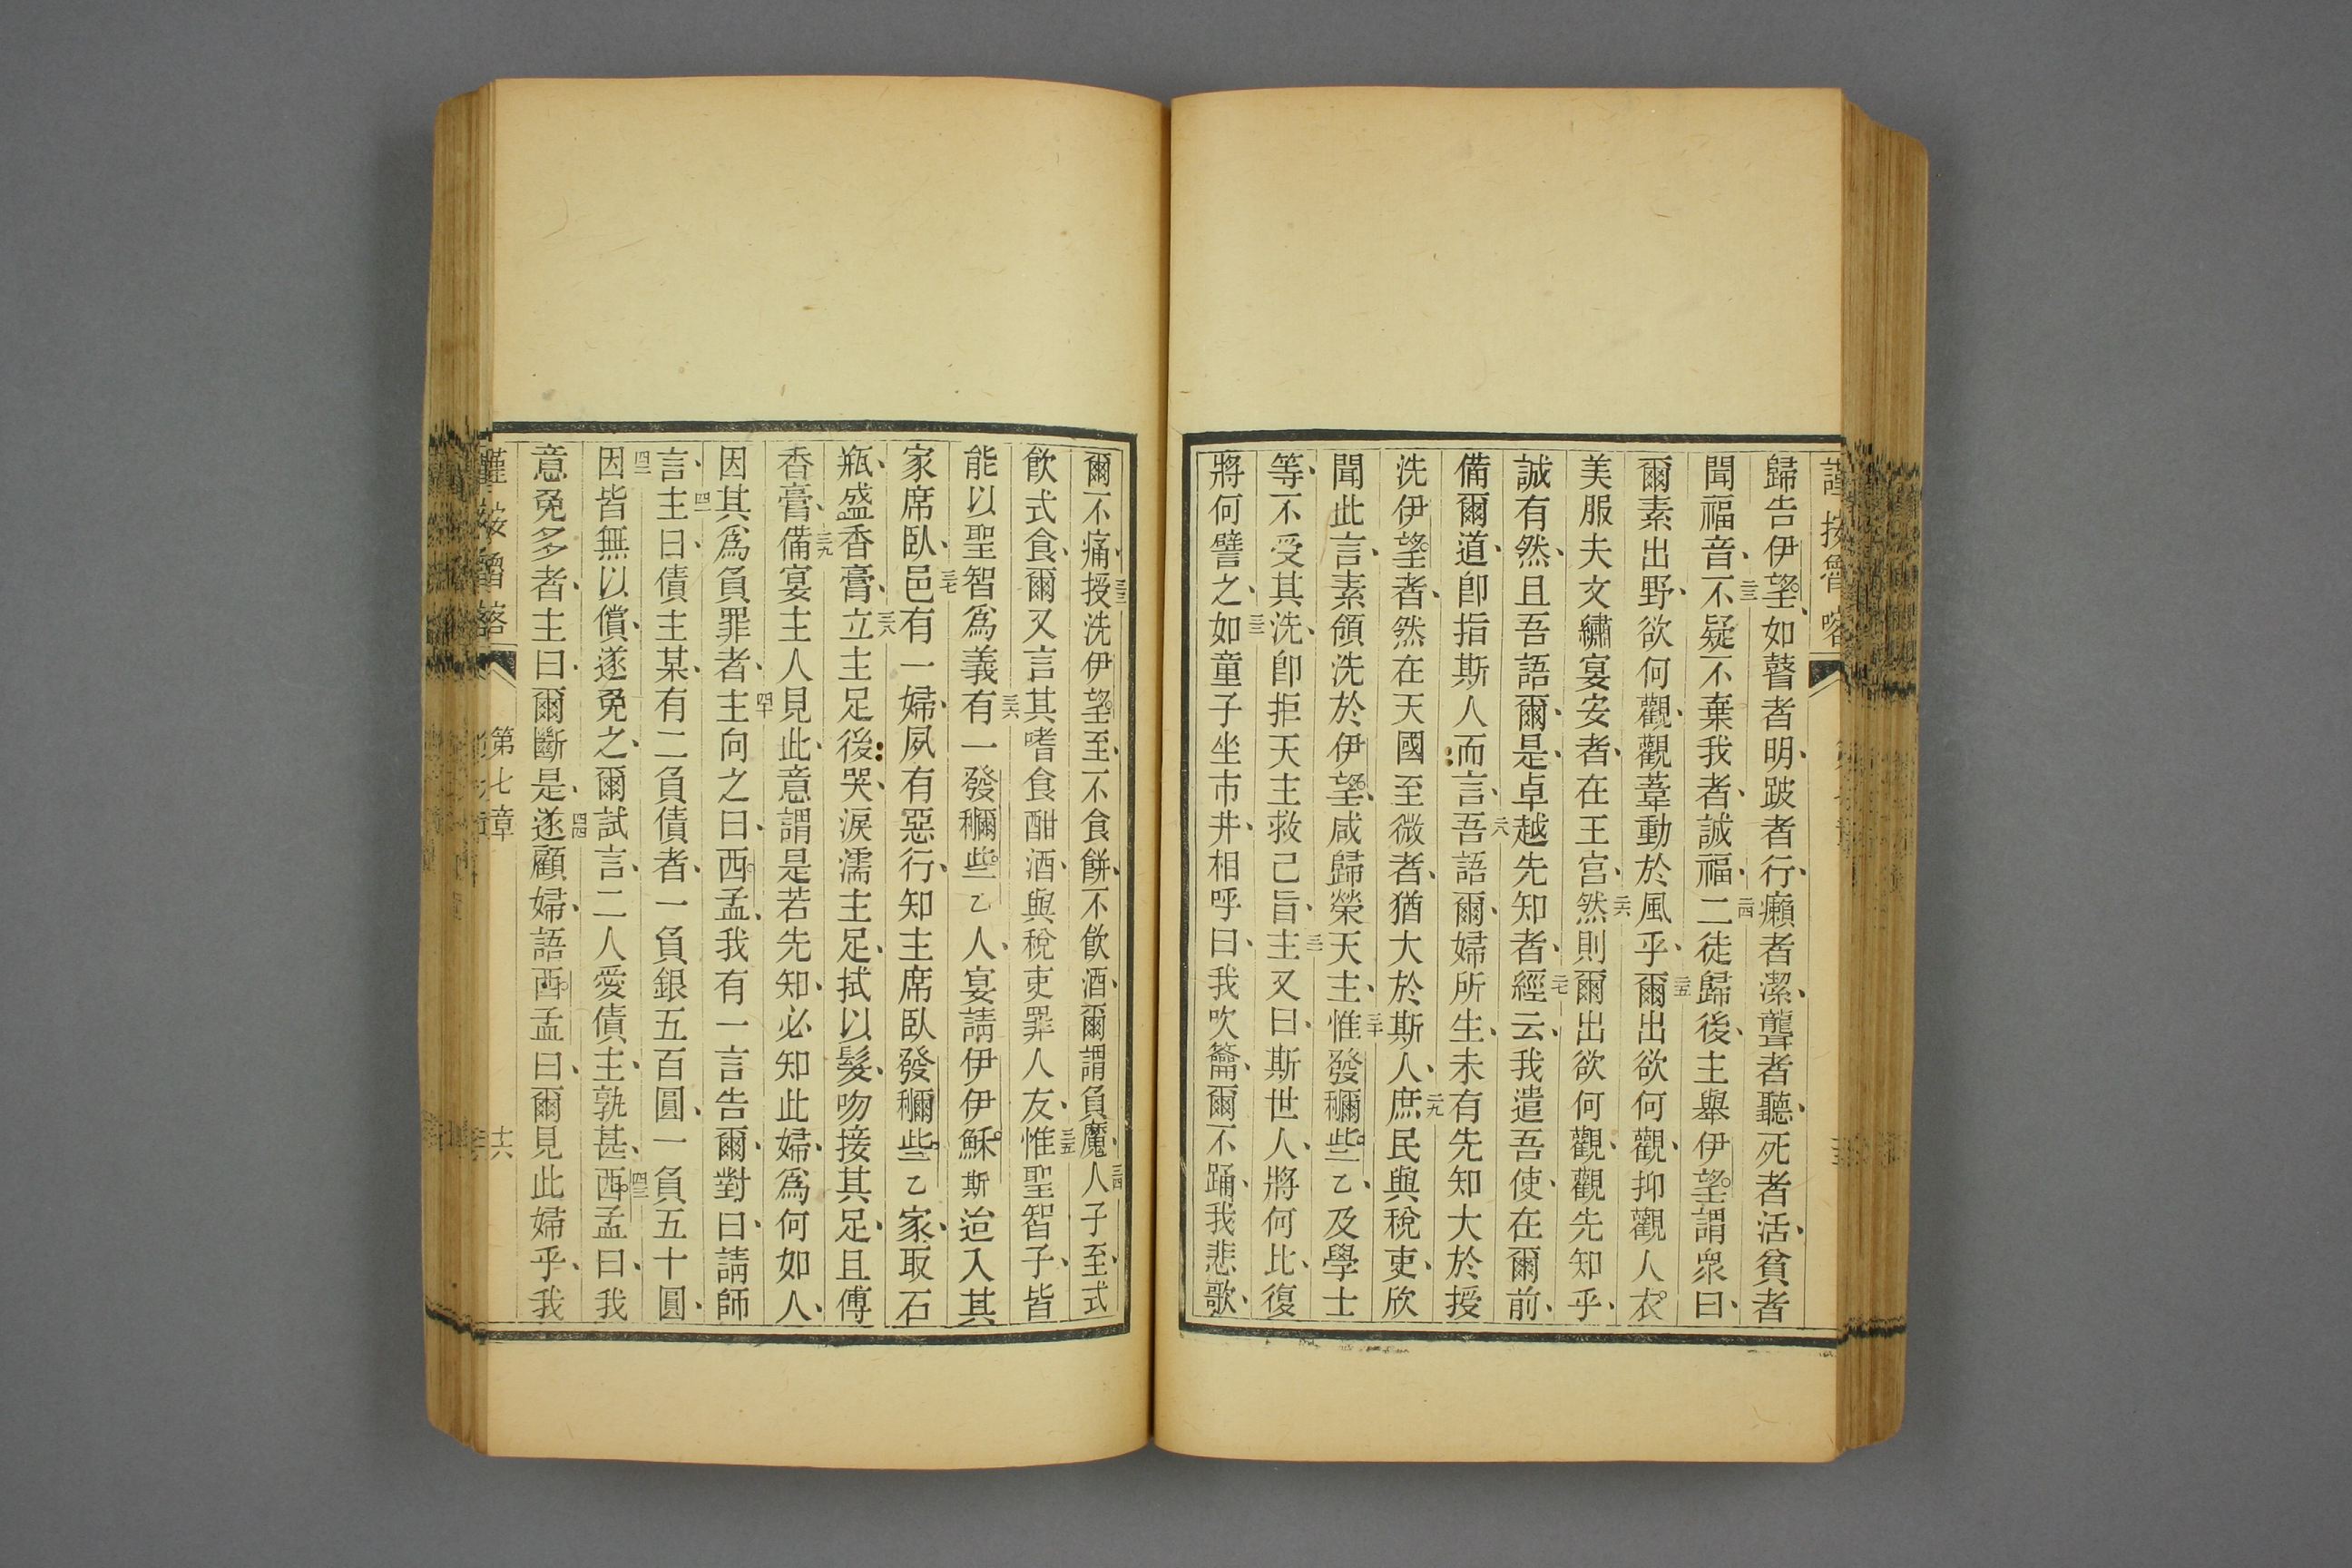 歸告伊望、如瞽者明、跛者行、癩者潔、聾者聽、死者活、貧者
聞福音、二三不疑不棄我者、誠福、二四二徒歸後、主舉伊望謂眾曰、
爾素出野、欲何觀、觀葦動於風乎、二五爾出欲何觀、抑觀人衣
美服夫文繡宴安者、在王宮、二六然則爾出欲何觀、觀先知乎、
誠有然、且吾語爾、是卓越先知者、二七經云、我遣吾使、在爾前、
備爾道、即指斯人而言、二八吾語爾、婦所生、未有先知大於授
洗伊望者、然在天國至微者、猶大於斯人、二九庶民與稅吏、欣
聞此言、素領洗於伊望、咸歸榮天主、三十惟發穪𠱁乙、及學士
等、不受其洗、即拒天主救己旨、三一主又曰、斯世人、將何比、復
將何譬之、三二如童子坐市井、相呼曰、我吹籥、爾不踊、我悲歌、
爾不痛、三三授洗伊望至、不食餅、不飲酒、爾謂負魔、三四人子至、式
飲式食、爾又言其嗜食酣酒、與稅吏罪人友、三五惟聖智子、皆
能以聖智為義、三六有一發穪𠱁乙人、宴請伊伊穌斯、迨入其
家席臥、三七邑有一婦、夙有惡行、知主席臥發穪𠱁乙家、取石
瓶、盛香膏、三八立主足後、哭、淚濡主足、拭以髮、吻接其足、且傅
香膏、三九備宴主人見此、意謂是若先知、必知此婦、為何如人、
因其為負罪者、四十主向之曰、西孟、我有一言告爾、對曰、請師
言、四一主曰、債主某、有二負債者、一負銀五百圓、一負五十圓、
四二因皆無以償、遂免之、爾試言、二人愛債主、孰甚、四三西孟曰、我
意免多者、主曰、爾斷是、四四遂顧婦、語西孟曰、爾見此婦乎、我
第七章
十六